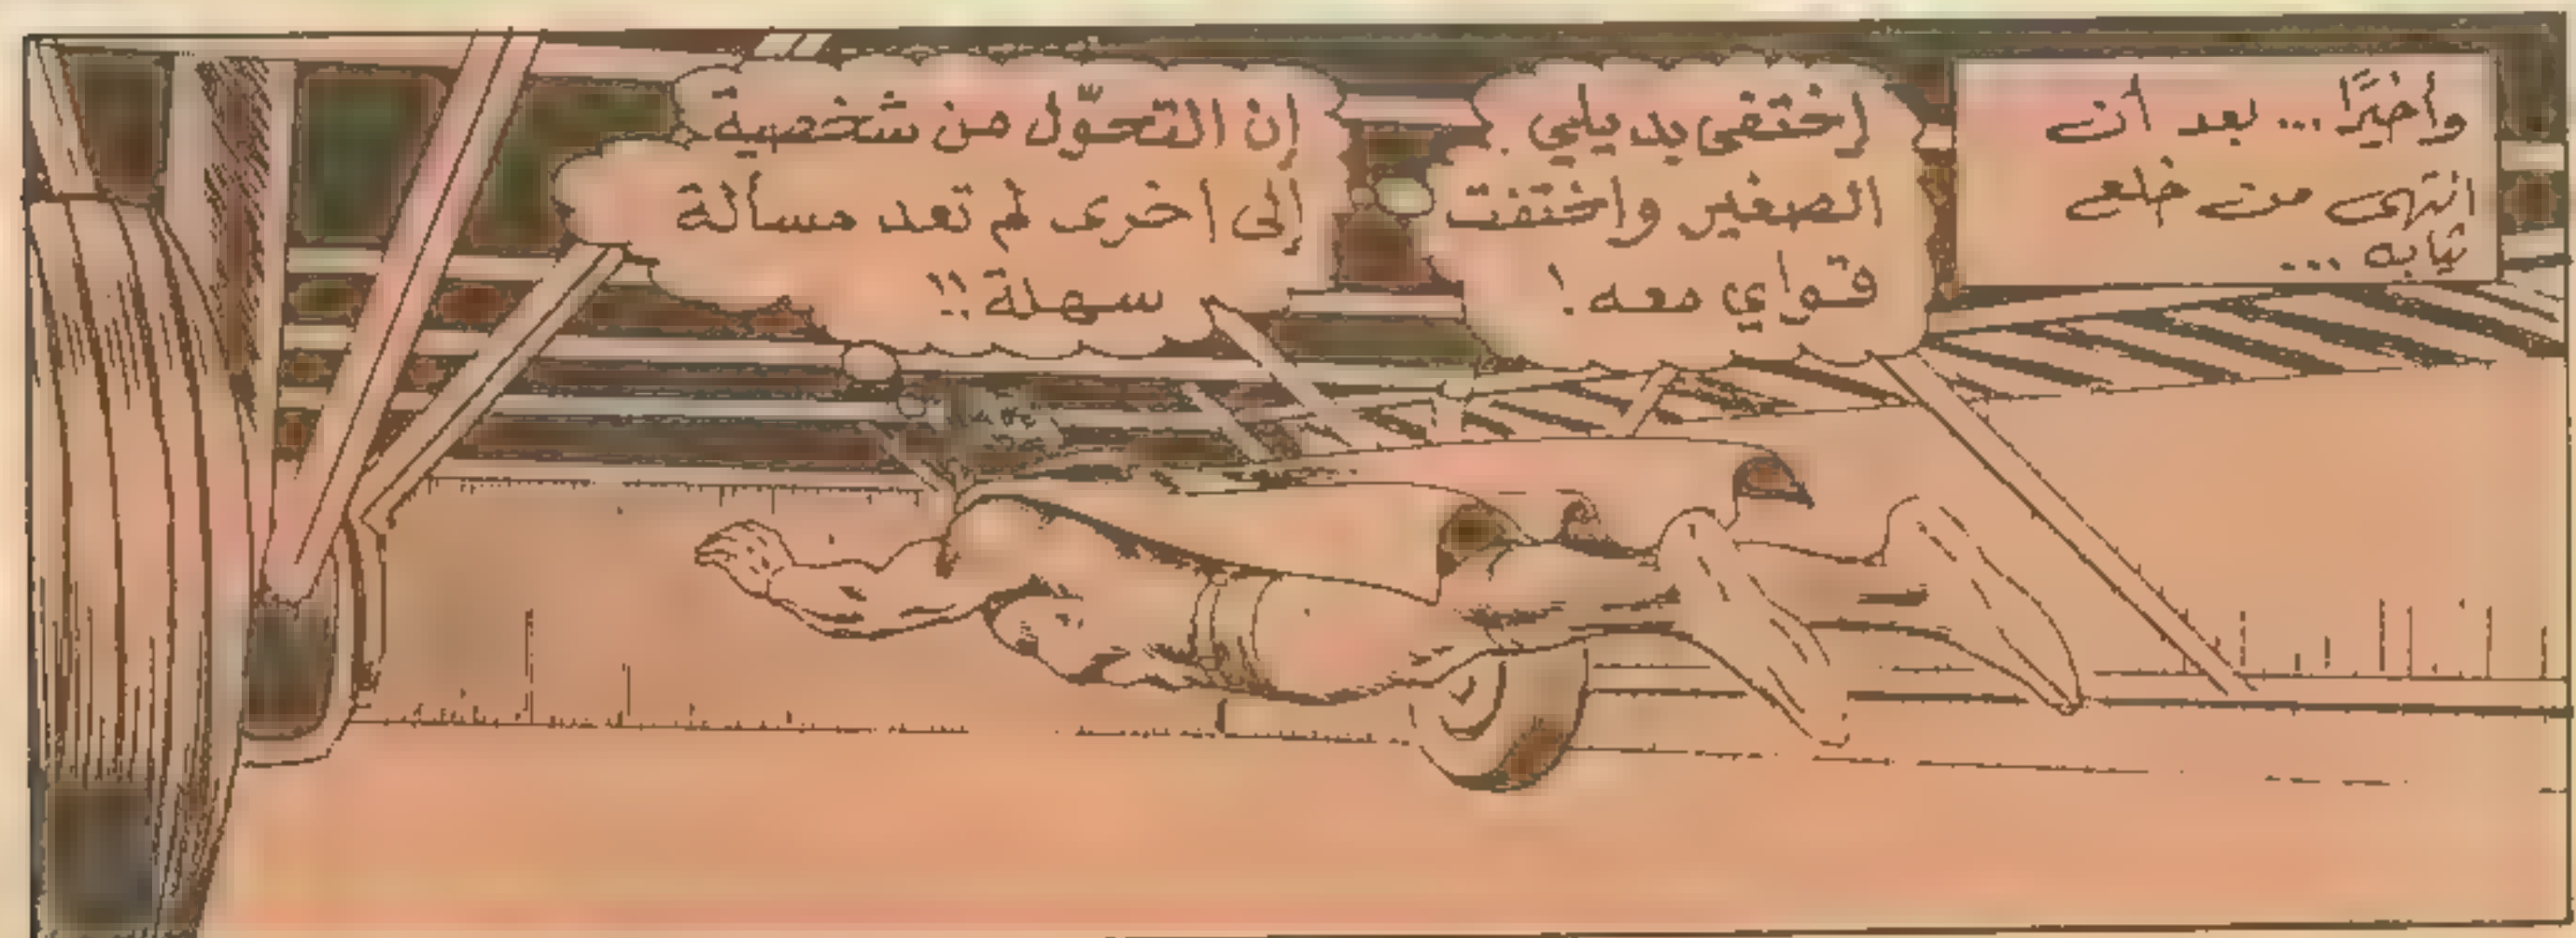 وأخيرًا... بعد أن
انتهى من خلع
ثيابه...
إختفى بديلي
الصغير واختفت
قواي معه!
إن التحوّل من شخصية
إلى اخرى لم تعد مسألة
سهلة!!